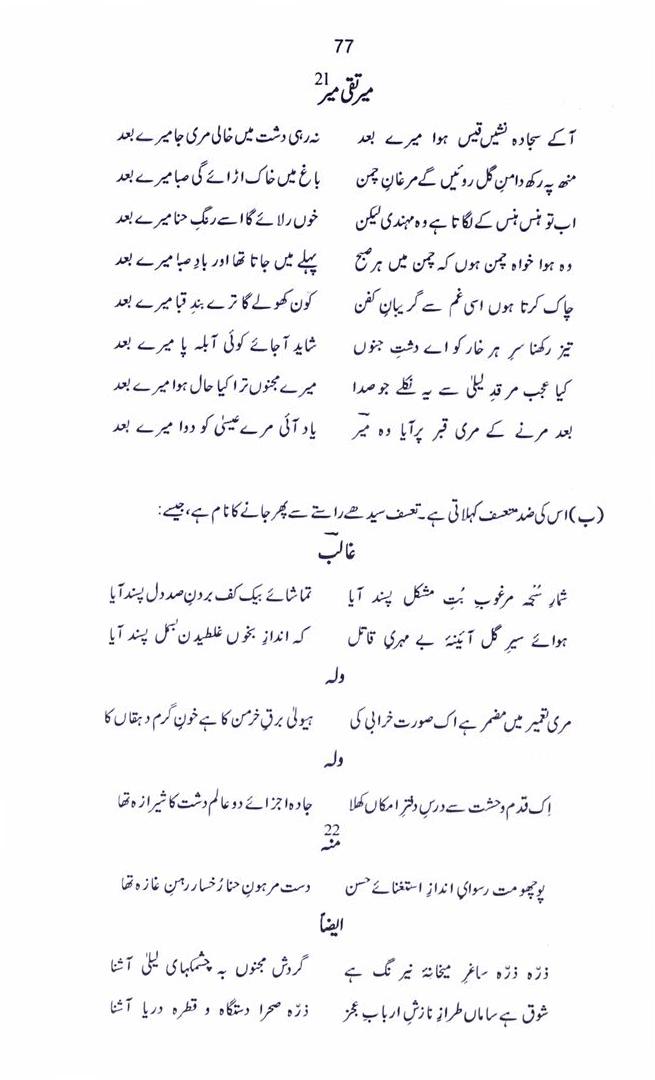 77
میر تقی میر 21
آکے سجادہ نشیں قیس ہوا میرے بعد نہ رہی دشت میں خالی مری جا میرے بعد
منھ پہ رکھ دامنِ گل روئیں گے مرغانِ چمن باغ میں خاک اڑائے گی صبا میرے بعد
اب تو ہنس ہنس کے لگاتا ہے وہ مہندی لیکن خوں رلائے گا اسے رنگِ حنا میرے بعد
وہ ہوا خواہ چمن ہوں کہ چمن میں ہر صبح پہلے میں جاتا تھا اور بادِ صبا میرے بعد
چاک کرتا ہوں اسی غم سے گریبانِ کفن کون کھولے گا ترے بندِ قبا میرے بعد
تیز رکھنا سرِ ہر خار کو اے دشتِ جنوں شاید آ جائے کوئی آبلہ پا میرے بعد
کیا عجب مرقدِ لیلیٰ سے یہ نکلے جو صدا میرے مجنوں ترا کیا حال ہوا میرے بعد
بعد مرنے کے مری قبر پر آیا وہ میرؔ یاد آئی مرے عیسیٰ کو دوا میرے بعد
(ب) اس کی ضد متعسف کہلاتی ہے۔ تعسف سیدھے راستے سے پھر جانے کا نام ہے، جیسے:
غالبؔ
شمارِ سُبحہ مرغوبِ بُتِ مشکل پسند آیا تماشائے بیک کف بردنِ صد دل پسند آیا
ہوائے سیرِ گل آئینۂ بے مہریِ قاتل کہ اندازِ بخوں غلطیدنِ بسمل پسند آیا
ولہ
مری تعمیر میں مضمر ہے اک صورت خرابی کی ہیولیٰ برقِ خرمن کا ہے خونِ گرم دہقاں کا
ولہ
اِک قدم وحشت سے درسِ دفترِ امکاں کھلا جادہ اجزائے دو عالم دشت کا شیرازہ تھا
منہ 22
پوچھو مت رسوایِ اندازِ استغنائے حسن دست مرہونِ حنا رُخسار رہنِ غازہ تھا
ایضاً
ذرّہ ذرّہ ساغرِ میخانۂ نیرنگ ہے گردش مجنوں بہ چشمکہای لیلیٰ آشنا
شوق ہے ساماں طرازِ نازشِ اربابِ عجز ذرّہ صحرا دستگاہ و قطرہ دریا آشنا